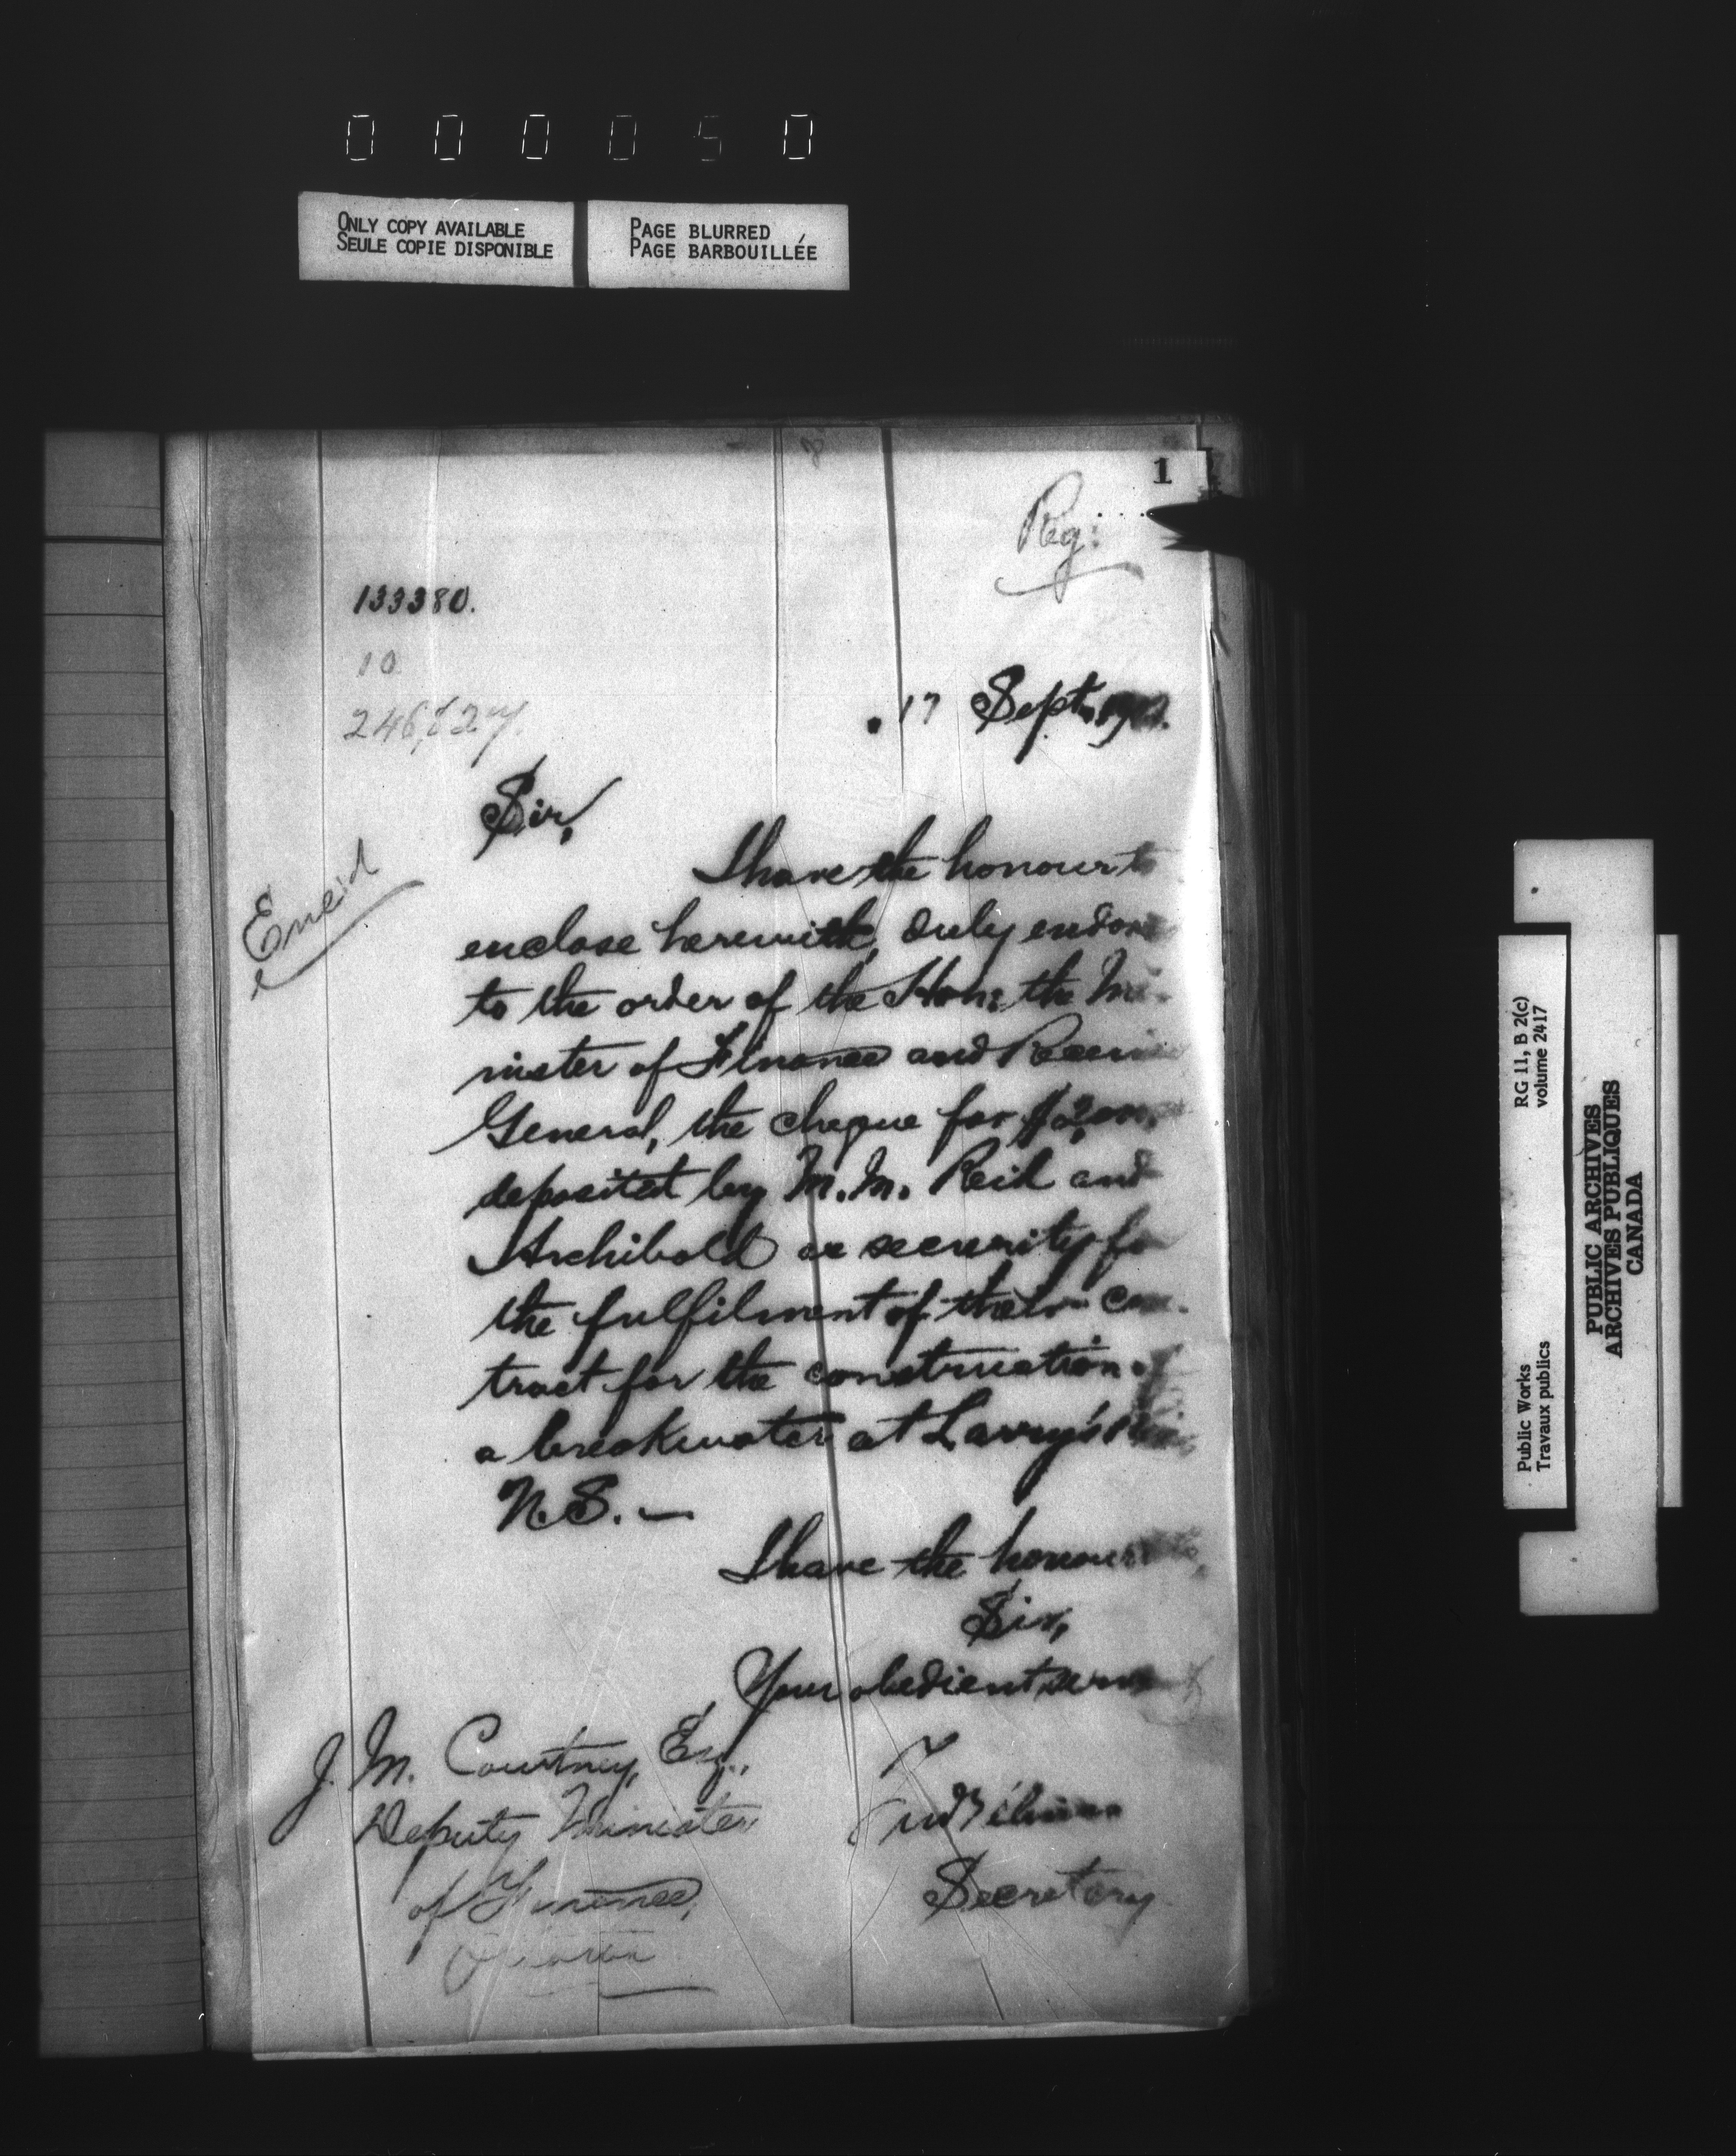 000050
ONLY COPY AVAILABLE
SEULE COPIE DISPONIBLE
PAGE BLURRED
PAGE BARBOUILLÉE
1
Reg:
133380.
10
17 Sept.
Sir,
I have the honour to
enclose herewith, duly
to the order of the Hon: the Mi-
nister of Finance and
General, the cheque for
deposited by M.M. Reid and
Archibald as security for
the fulfilment of their con-
tract for the construction of
a breakwater at Larry's
N.S. —
I have the honour
Sir,
Your obedient
J. M. Courtney, Esq.,
Deputy Minister
of Finance,
Ottawa
Secretary
RG 11, B 2(c)
volume 2417
Public Works
Travaux publics
PUBLIC ARCHIVES
ARCHIVES PUBLIQUES
CANADA